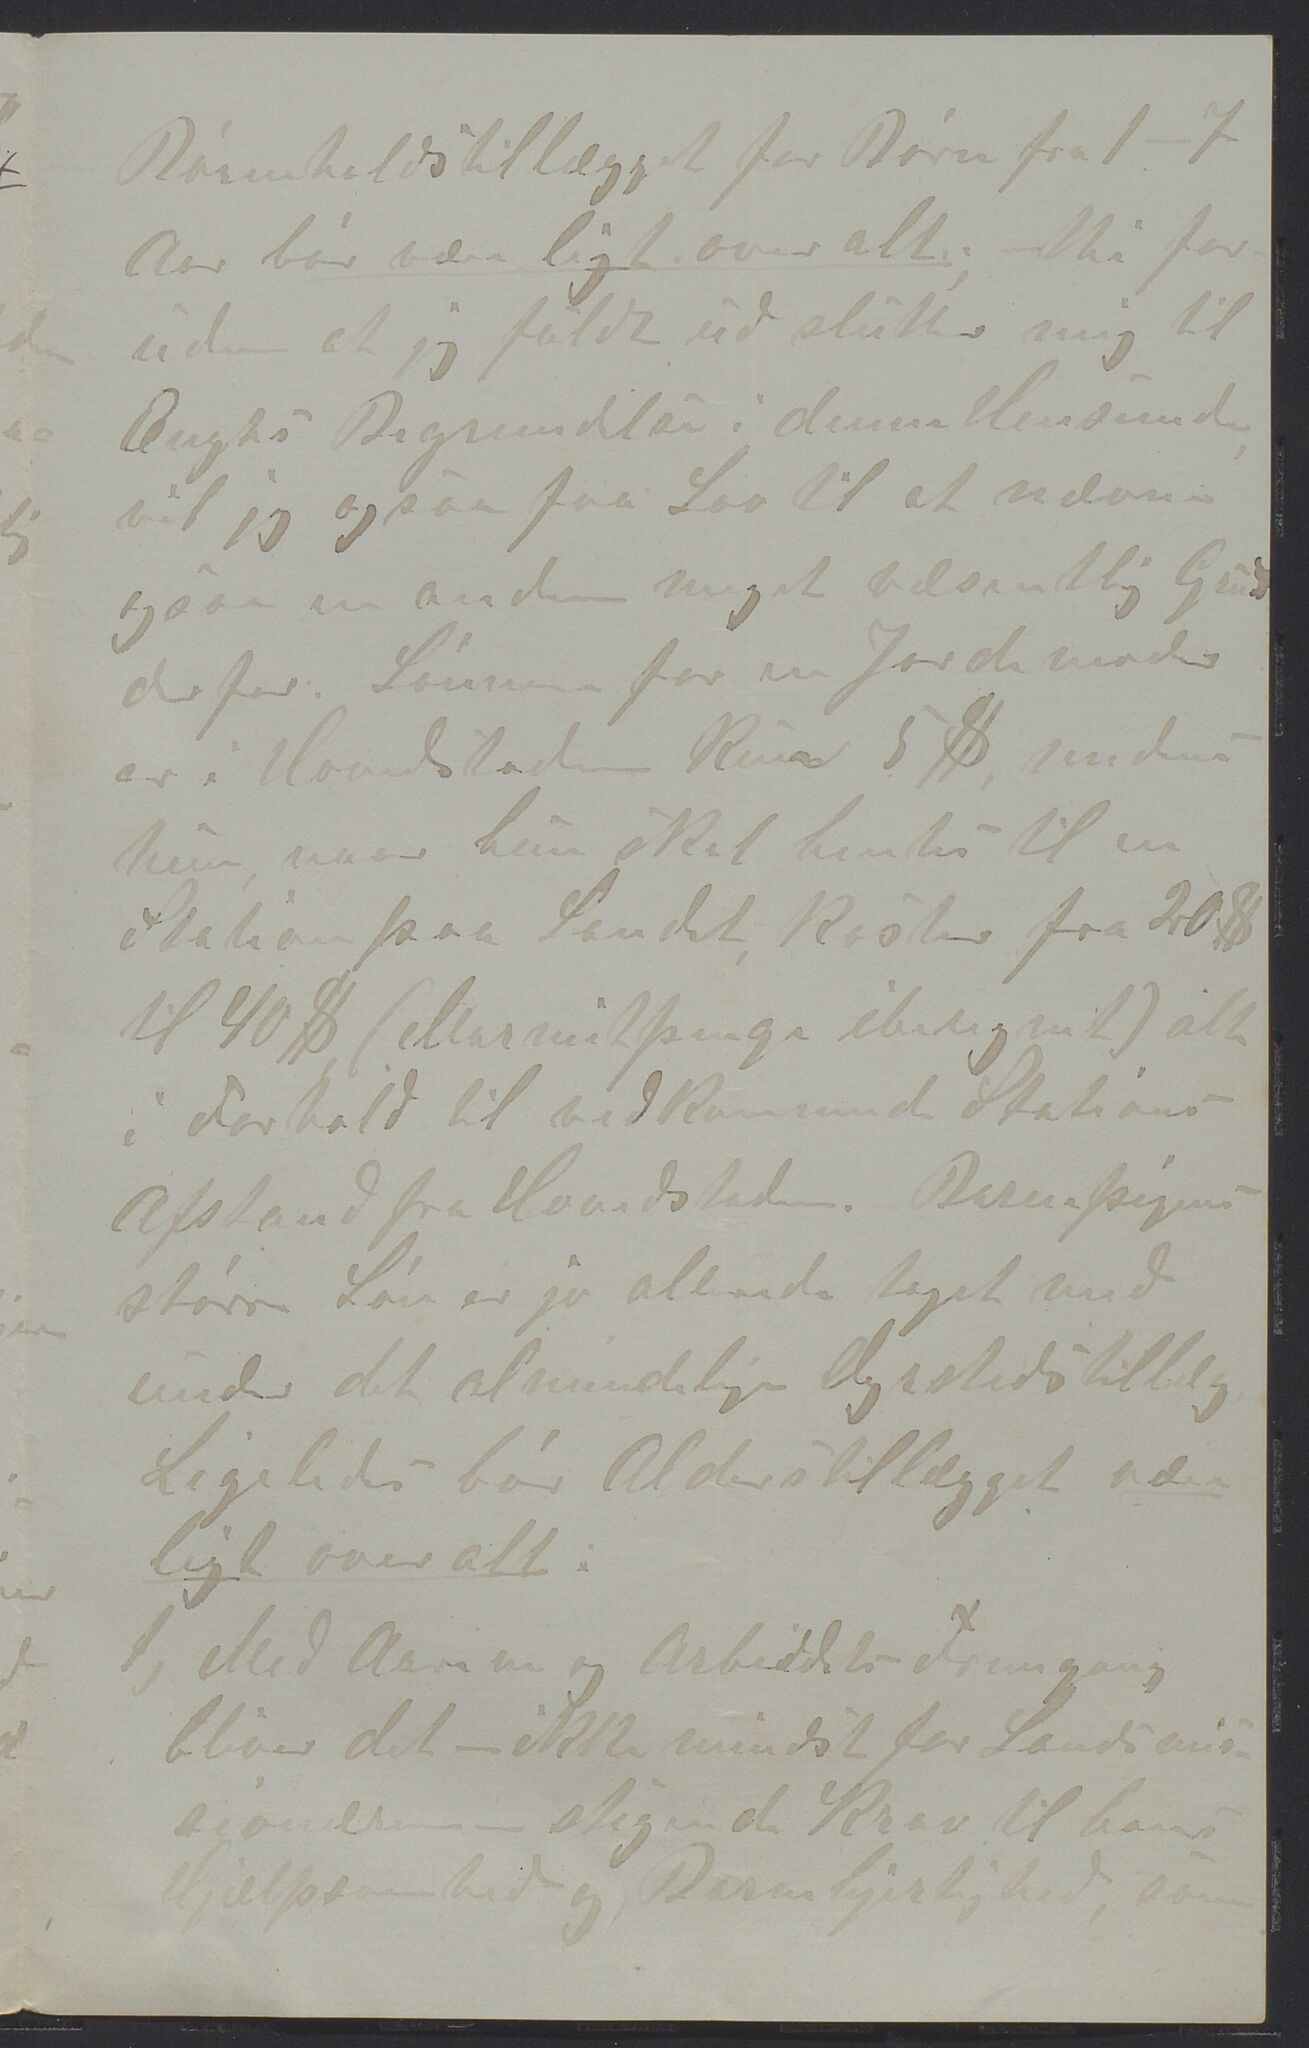 Børneholdstillægget for Børn fra 1–7
Aar bør være ligt over alt; – thi for-
uden at jeg fuldt ud slutter mig til
Enghs Begrundelse i denne Henseende,
vil jeg ogsaa faa Lov til at nævne
ogsaa en anden meget væsentlig Grund
derfor. Lønnen for en Jordemoder
er i Hovedstaden kun 5 $, medens
hun, naar hun skal hentes til en
Station paa Landet, koster fra 20 $
til 40 $ (Marmitpenge iberegnet) alt
i Forhold til vedkommende Stations
Afstand fra Hovedstaden. Barnepigens
større Løn er jo allerede taget med
under det almindelige Dyrstedstillæg
Ligeledes bør Alderstillægget være
ligt over alt:
1, Med Aarene og Arbeidets Fremgang
bliver det – ikke mindst for Landsmis-
sionæren – stigende Krav til hans
Hjælpsomhed og Barmhjertighed, som